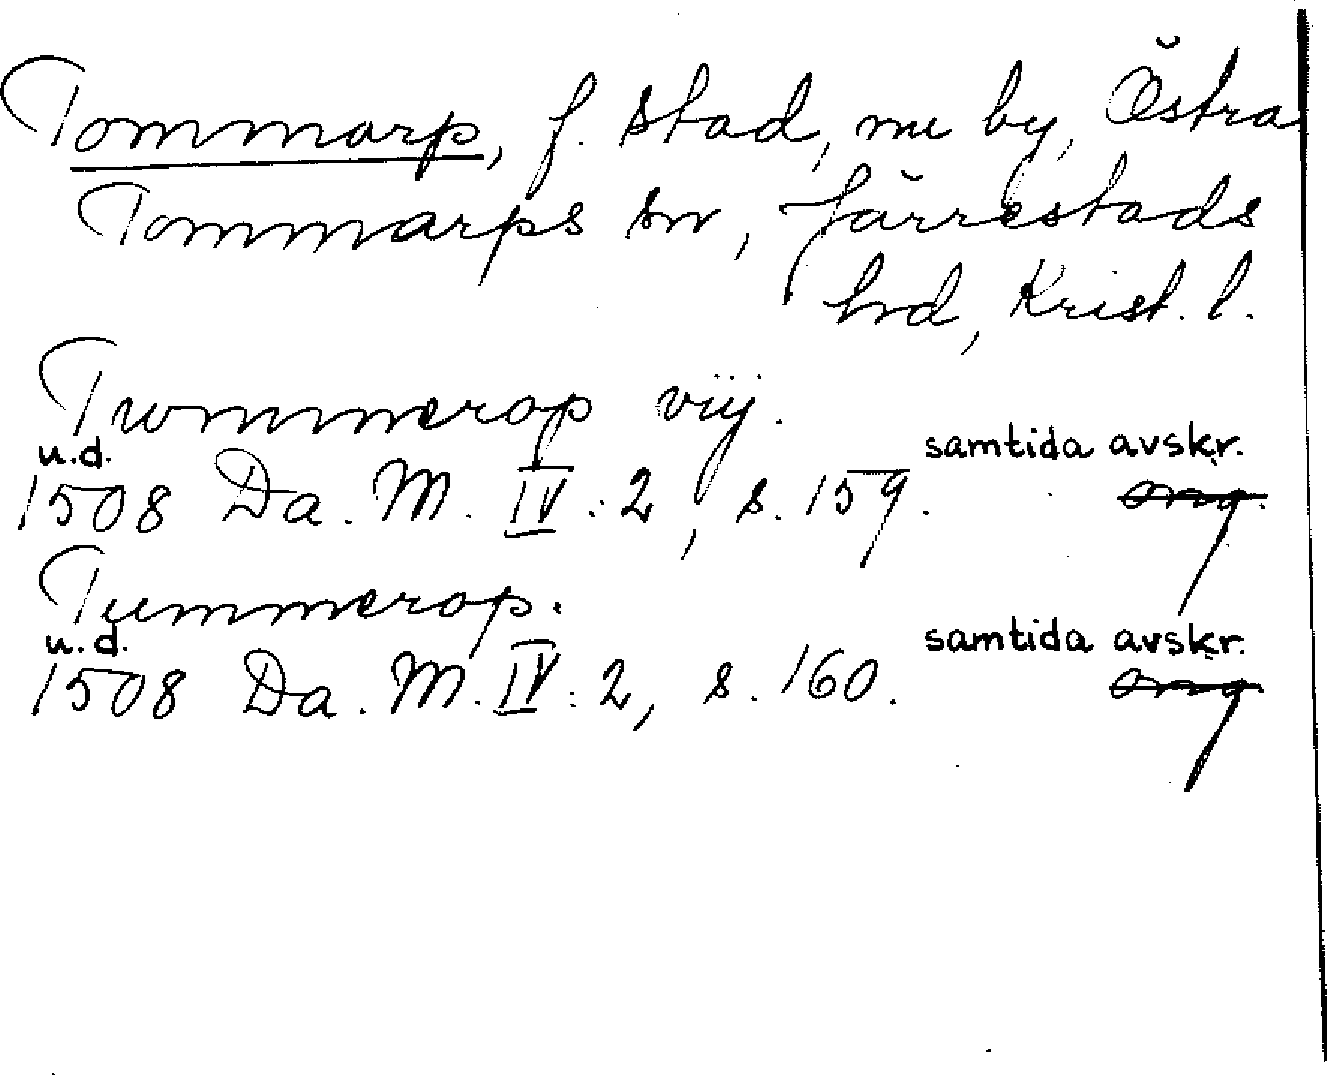 Tommarp, f. stad, nu by, Östra
Tommarps sn, Järrestads
hrd, Krist. l.
Twmmerop vij.
u.d. samtida avskr.
1508 Da. M. IV:2, s. 159. org.
Tummerop.
u.d. samtida avskr.
1508 Da. M. IV:2, s. 160. org